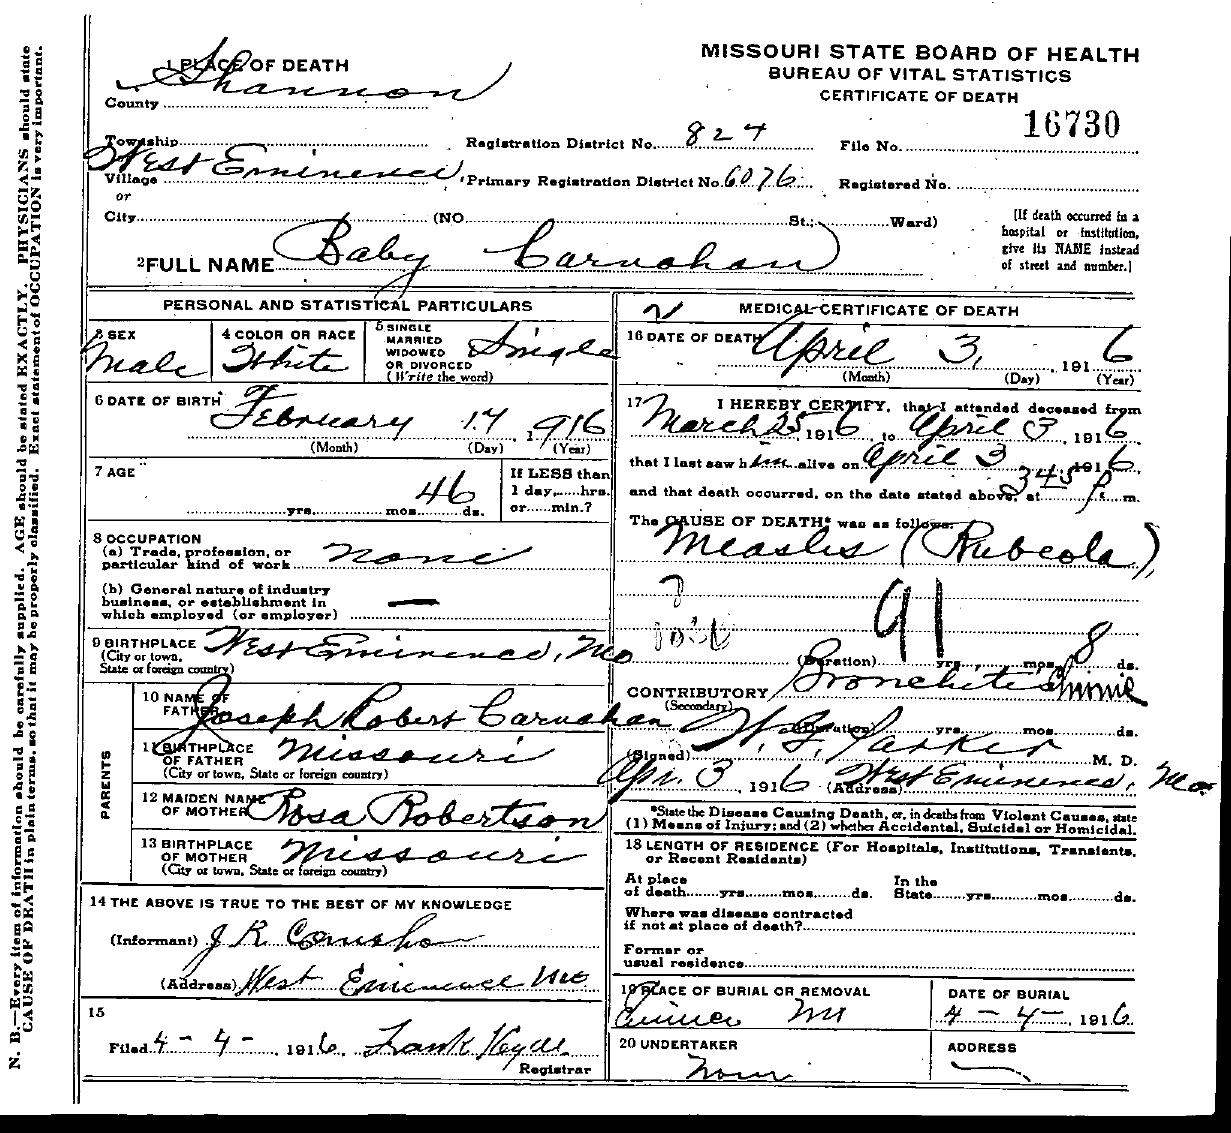 N. B.—Every item of information should be carefully supplied. AGE should be stated EXACTLY. PHYSICIANS should state
CAUSE OF DEATH in plain terms, so that it may be properly classified. Exact statement of OCCUPATION is very important.
MISSOURI STATE BOARD OF HEALTH
BUREAU OF VITAL STATISTICS
CERTIFICATE OF DEATH
16730
1 PLACE OF DEATH
County Shannon
Township Registration District No. 824 File No.
Village West Eminence, Primary Registration District No. 6076 Registered No.
or
City (NO St.; Ward)
[If death occurred in a
hospital or institution,
give its NAME instead
of street and number.]
2 FULL NAME Baby Carnahan
PERSONAL AND STATISTICAL PARTICULARS
3 SEX Male
4 COLOR OR RACE White
5 SINGLE
MARRIED
WIDOWED
OR DIVORCED
(Write the word) Single
6 DATE OF BIRTH February 17, 1916
(Month) (Day) (Year)
7 AGE
yrs. mos. 46 ds.
If LESS than
1 day, hrs.
or min.?
8 OCCUPATION
(a) Trade, profession, or
particular kind of work none
(b) General nature of industry
business, or establishment in
which employed (or employer) —
9 BIRTHPLACE West Eminence, Mo
(City or town,
State or foreign country)
PARENTS
10 NAME OF
FATHER Joseph Robert Carnahan
11 BIRTHPLACE
OF FATHER Missouri
(City or town, State or foreign country)
12 MAIDEN NAME
OF MOTHER Rosa Robertson
13 BIRTHPLACE
OF MOTHER Missouri
(City or town, State or foreign country)
14 THE ABOVE IS TRUE TO THE BEST OF MY KNOWLEDGE
(Informant) J R
(Address) West Eminence Mo
15
Filed 4-4-, 1916, Frank Hyde
Registrar
MEDICAL CERTIFICATE OF DEATH
16 DATE OF DEATH April 3, 1916
(Month) (Day) (Year)
17 I HEREBY CERTIFY, that I attended deceased from
March 25 1916, to April 3, 1916,
that I last saw him alive on April 3, 1916,
and that death occurred, on the date stated above, at 345 P. m.
The CAUSE OF DEATH* was as follows:
Measles (Rubeola),
91
(Duration) yrs. mos. 8 ds.
CONTRIBUTORY Bronchitis
(Secondary)
(Duration) yrs. mos. ds.
(Signed) Parker M. D.
Apr. 3, 1916 (Address) West Eminence, Mo.
*State the Disease Causing Death, or, in deaths from Violent Causes, state
(1) Means of Injury; and (2) whether Accidental, Suicidal or Homicidal.
18 LENGTH OF RESIDENCE (For Hospitals, Institutions, Transients,
or Recent Residents)
At place
of death yrs. mos. ds.
In the
State yrs. mos. ds.
Where was disease contracted
if not at place of death?
Former or
usual residence
19 PLACE OF BURIAL OR REMOVAL
Mo
DATE OF BURIAL
4-4-, 1916
20 UNDERTAKER
ADDRESS